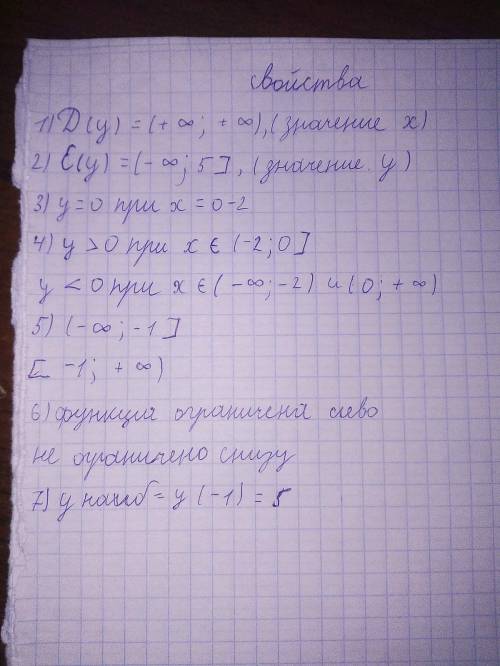 свойства
1) D(y) = (+ ∞; + ∞), (значение x)
2) E(y) = (- ∞; 5], (значение y)
3) y = 0 при x = 0 - 2
4) y > 0 при x ∈ (-2; 0]
y < 0 при x ∈ (- ∞; -2) и (0; + ∞)
5) (-∞; -1]
[ -1; + ∞)
6) функция ограничена
не ограничено снизу
7) y наиб = y (-1) = 5